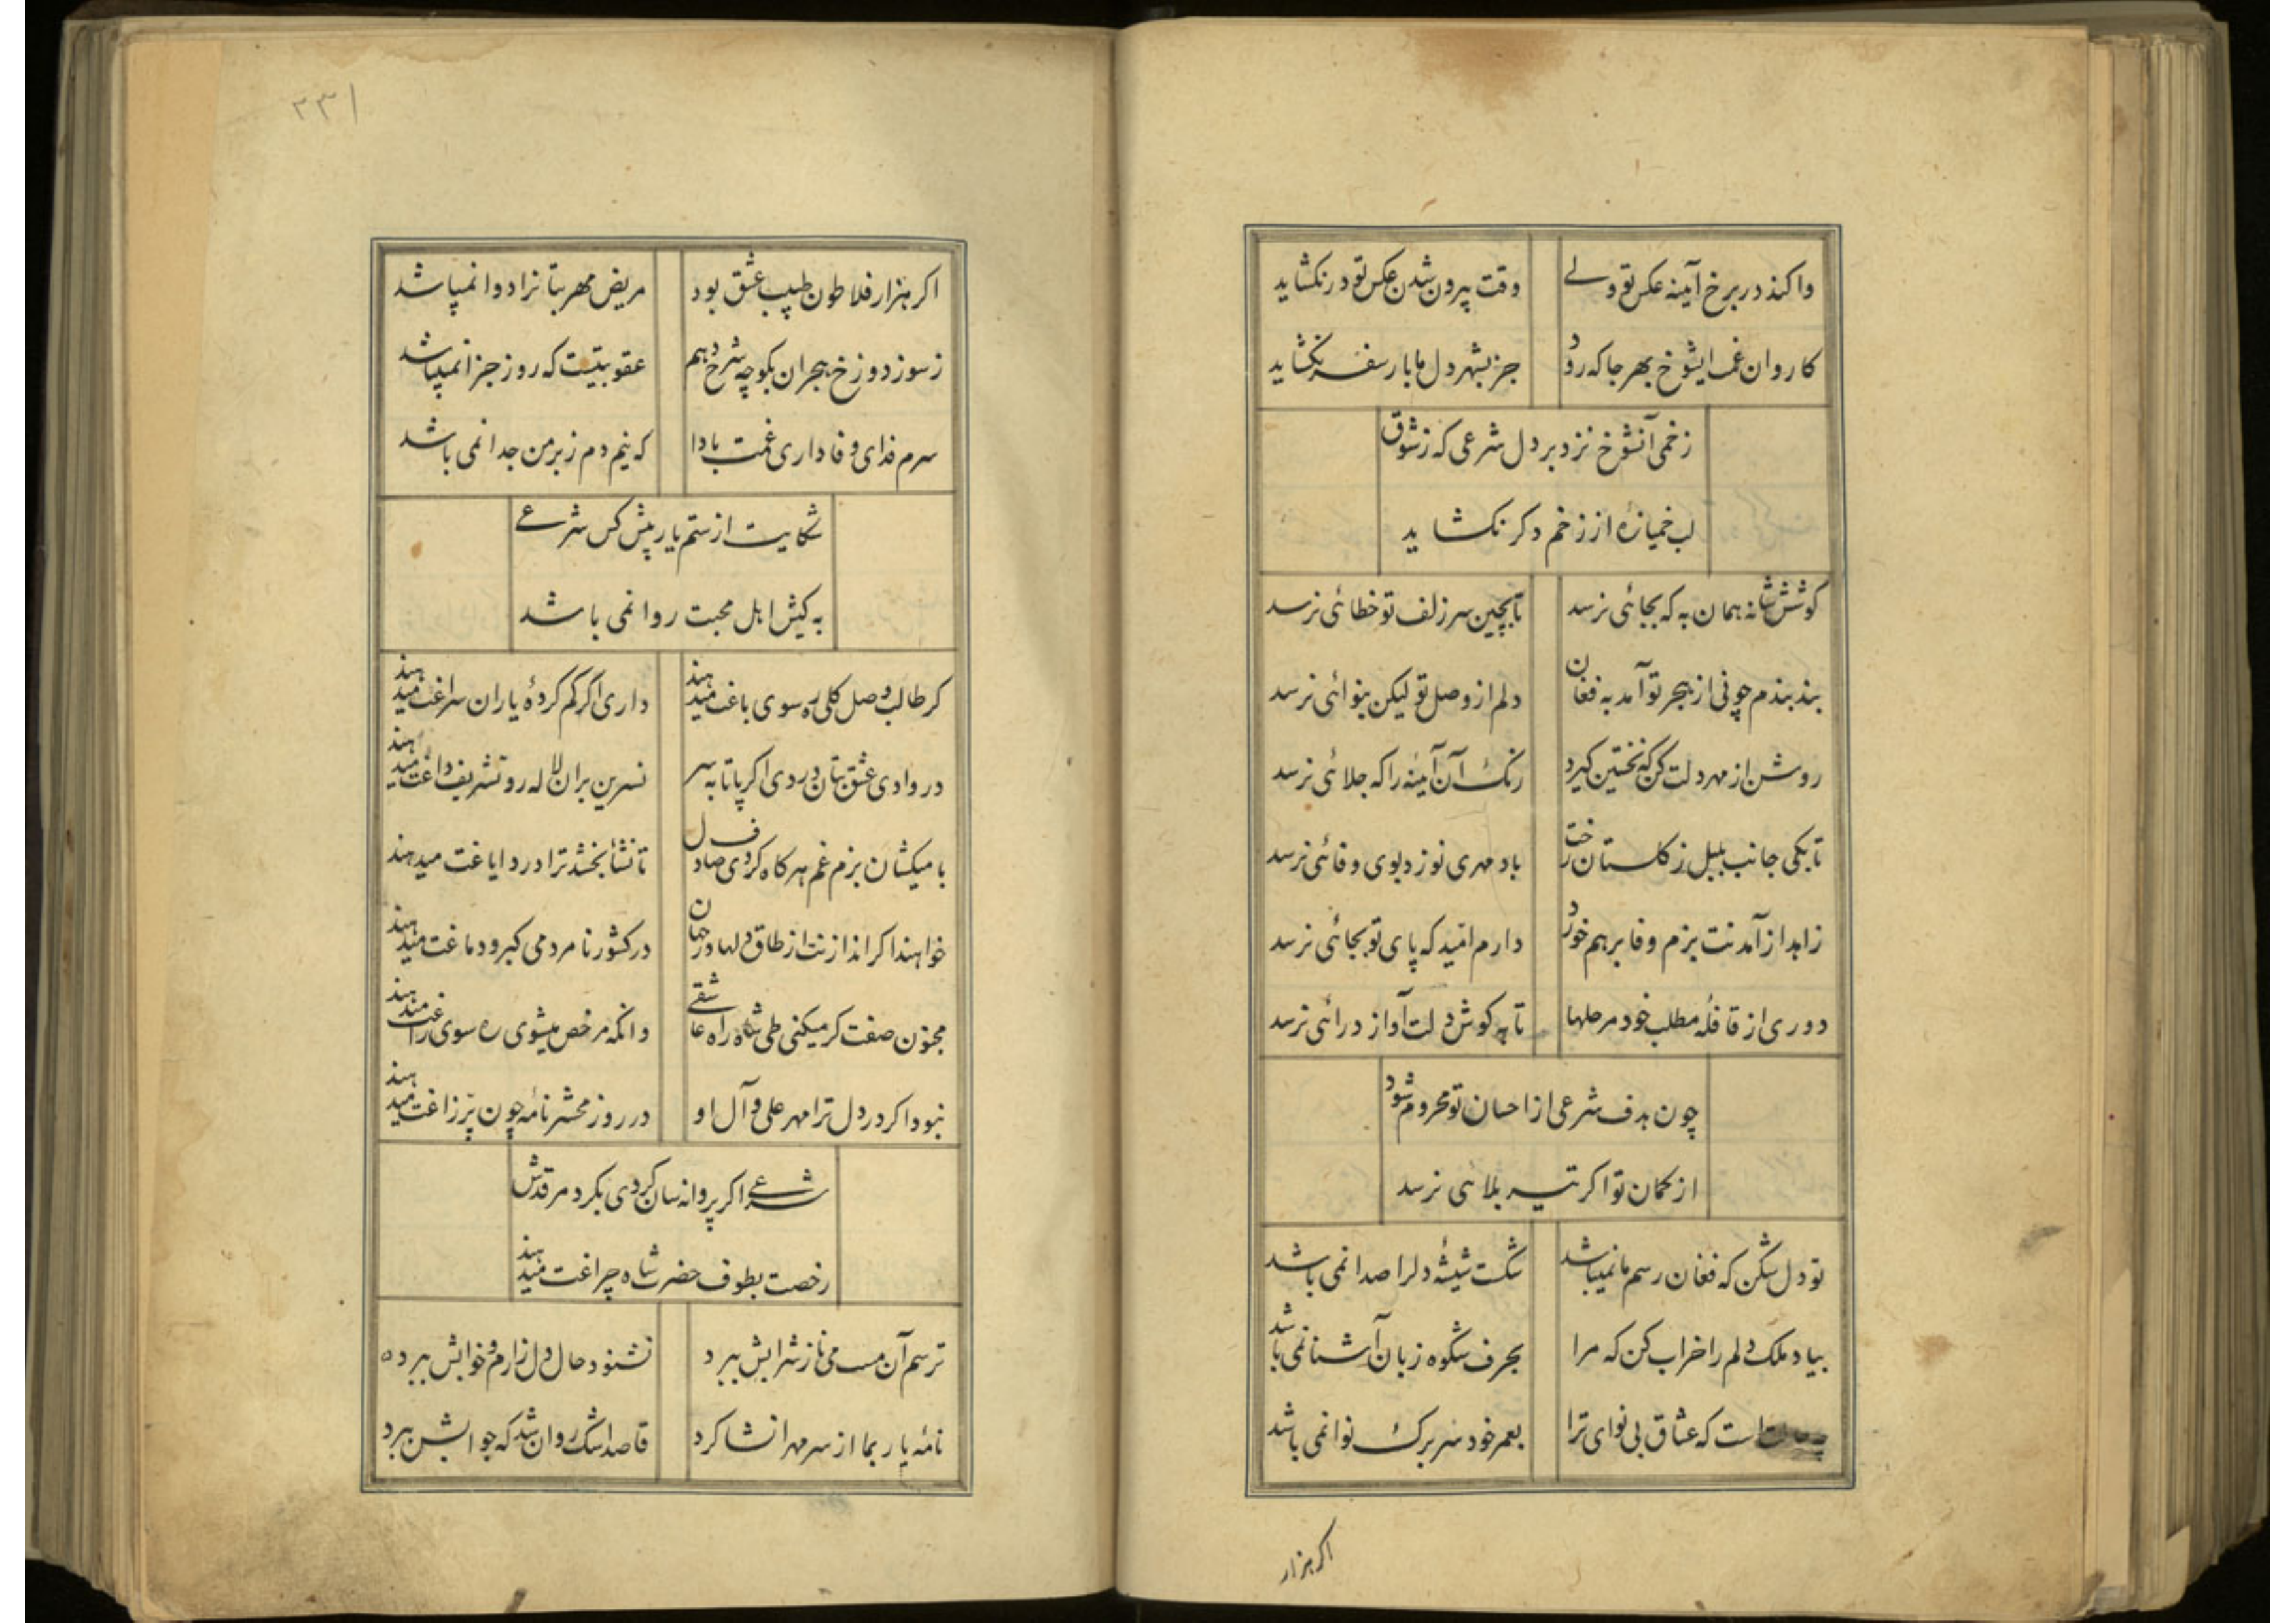 واکند در برخ آینه عکس تو ولے
وقت پیرون شدن عکس تو در نکشاید
کاروان غمت ایشوخ بهر جا که رود
جز بشهر دل ما بار سفر نکشاید
زخمی آنشوخ نزد بر دل شرعی که ز شوق
لب خمیازهٔ از زخم دکر نکشاید
کوشش شانه همان به که بجائی نرسد
تا بچین سر زلف تو خطائی نرسد
بند بندم چو نی از هجر تو آمد به فغان
دلم از وصل تو لیکن بنوائی نرسد
روشن از مهر دلت کن که نخستین کیرد
زنک آن آینه را که جلائی نرسد
تا بکی جانب بلبل ز کلستان رخت
باد مهری نوزد بوی وفائی نرسد
زاهد از آمدنت بزم وفا برهم خورد
دارم امّید که پای تو بجائی نرسد
دوری از قافلهٔ مطلب خود مرحلها
تا به کوش دلت آواز درائی نرسد
چون هدف شرعی از احسان تو محروم شود
از کمان تو اکر تیر بلائی نرسد
تو دل شکن که فغان رسم ما نمیباشد
شکست شیشهٔ دلرا صدا نمی باشد
بیا و ملک دلم را خراب کن که مرا
بحرف شکوه زبان آشنا نمی باشد
است که عشاق بی نوای ترا
بعمر خود سر برک نوا نمی باشد
اکر هزار
۲۳۱
اکر هزار فلاطون طبیب عشق بود
مریض مهر بتانرا دوا نمیباشد
ز سوز دوزخ هجران بکو چه شرح دهم
عقوبتیست که روز جزا نمیباشد
سرم فدای وفاداری غمت بادا
که نیم دم ز بر من جدا نمی باشد
شکایت از ستم یار پیش کس شرعے
به کیش اهل محبت روا نمی باشد
کر طالب وصل کلی ره سوی باغت میدهند
داری اکر کم کردهٔ یاران سراغت میدهند
در وادی عشق بتان دردی اکر پا تا به سر
نسرین بران لاله رو تشریف داغت میدهند
با میکشان بزم غم هر کاه کردی صاف دل
تا نشأ بخشد ترا درد ایاغت میدهند
خواهند اکر اندازنت از طاق دلها در جهان
در کشور نامردمی کبر و دماغت میدهند
مجنون صفت کر میکنی طی شاه راه عاشقے
وانکه مرخص میشوی ره سوی راغت میدهند
نبود اکر در دل ترا مهر علی و آل او
در روز محشر نامهٔ چون پرّ زاغت میدهند
شرعے اکر پروانه سان کردی بکرد مرقدش
رخصت بطوف حضرت شاه چراغت میدهند
ترسم آن مست می ناز شرابش ببرد
نشنود حال دل زارم و خوابش ببرد
نامهٔ یار بما از سر مهر انشا کرد
قاصد اشک روان شد که جوابش ببرد